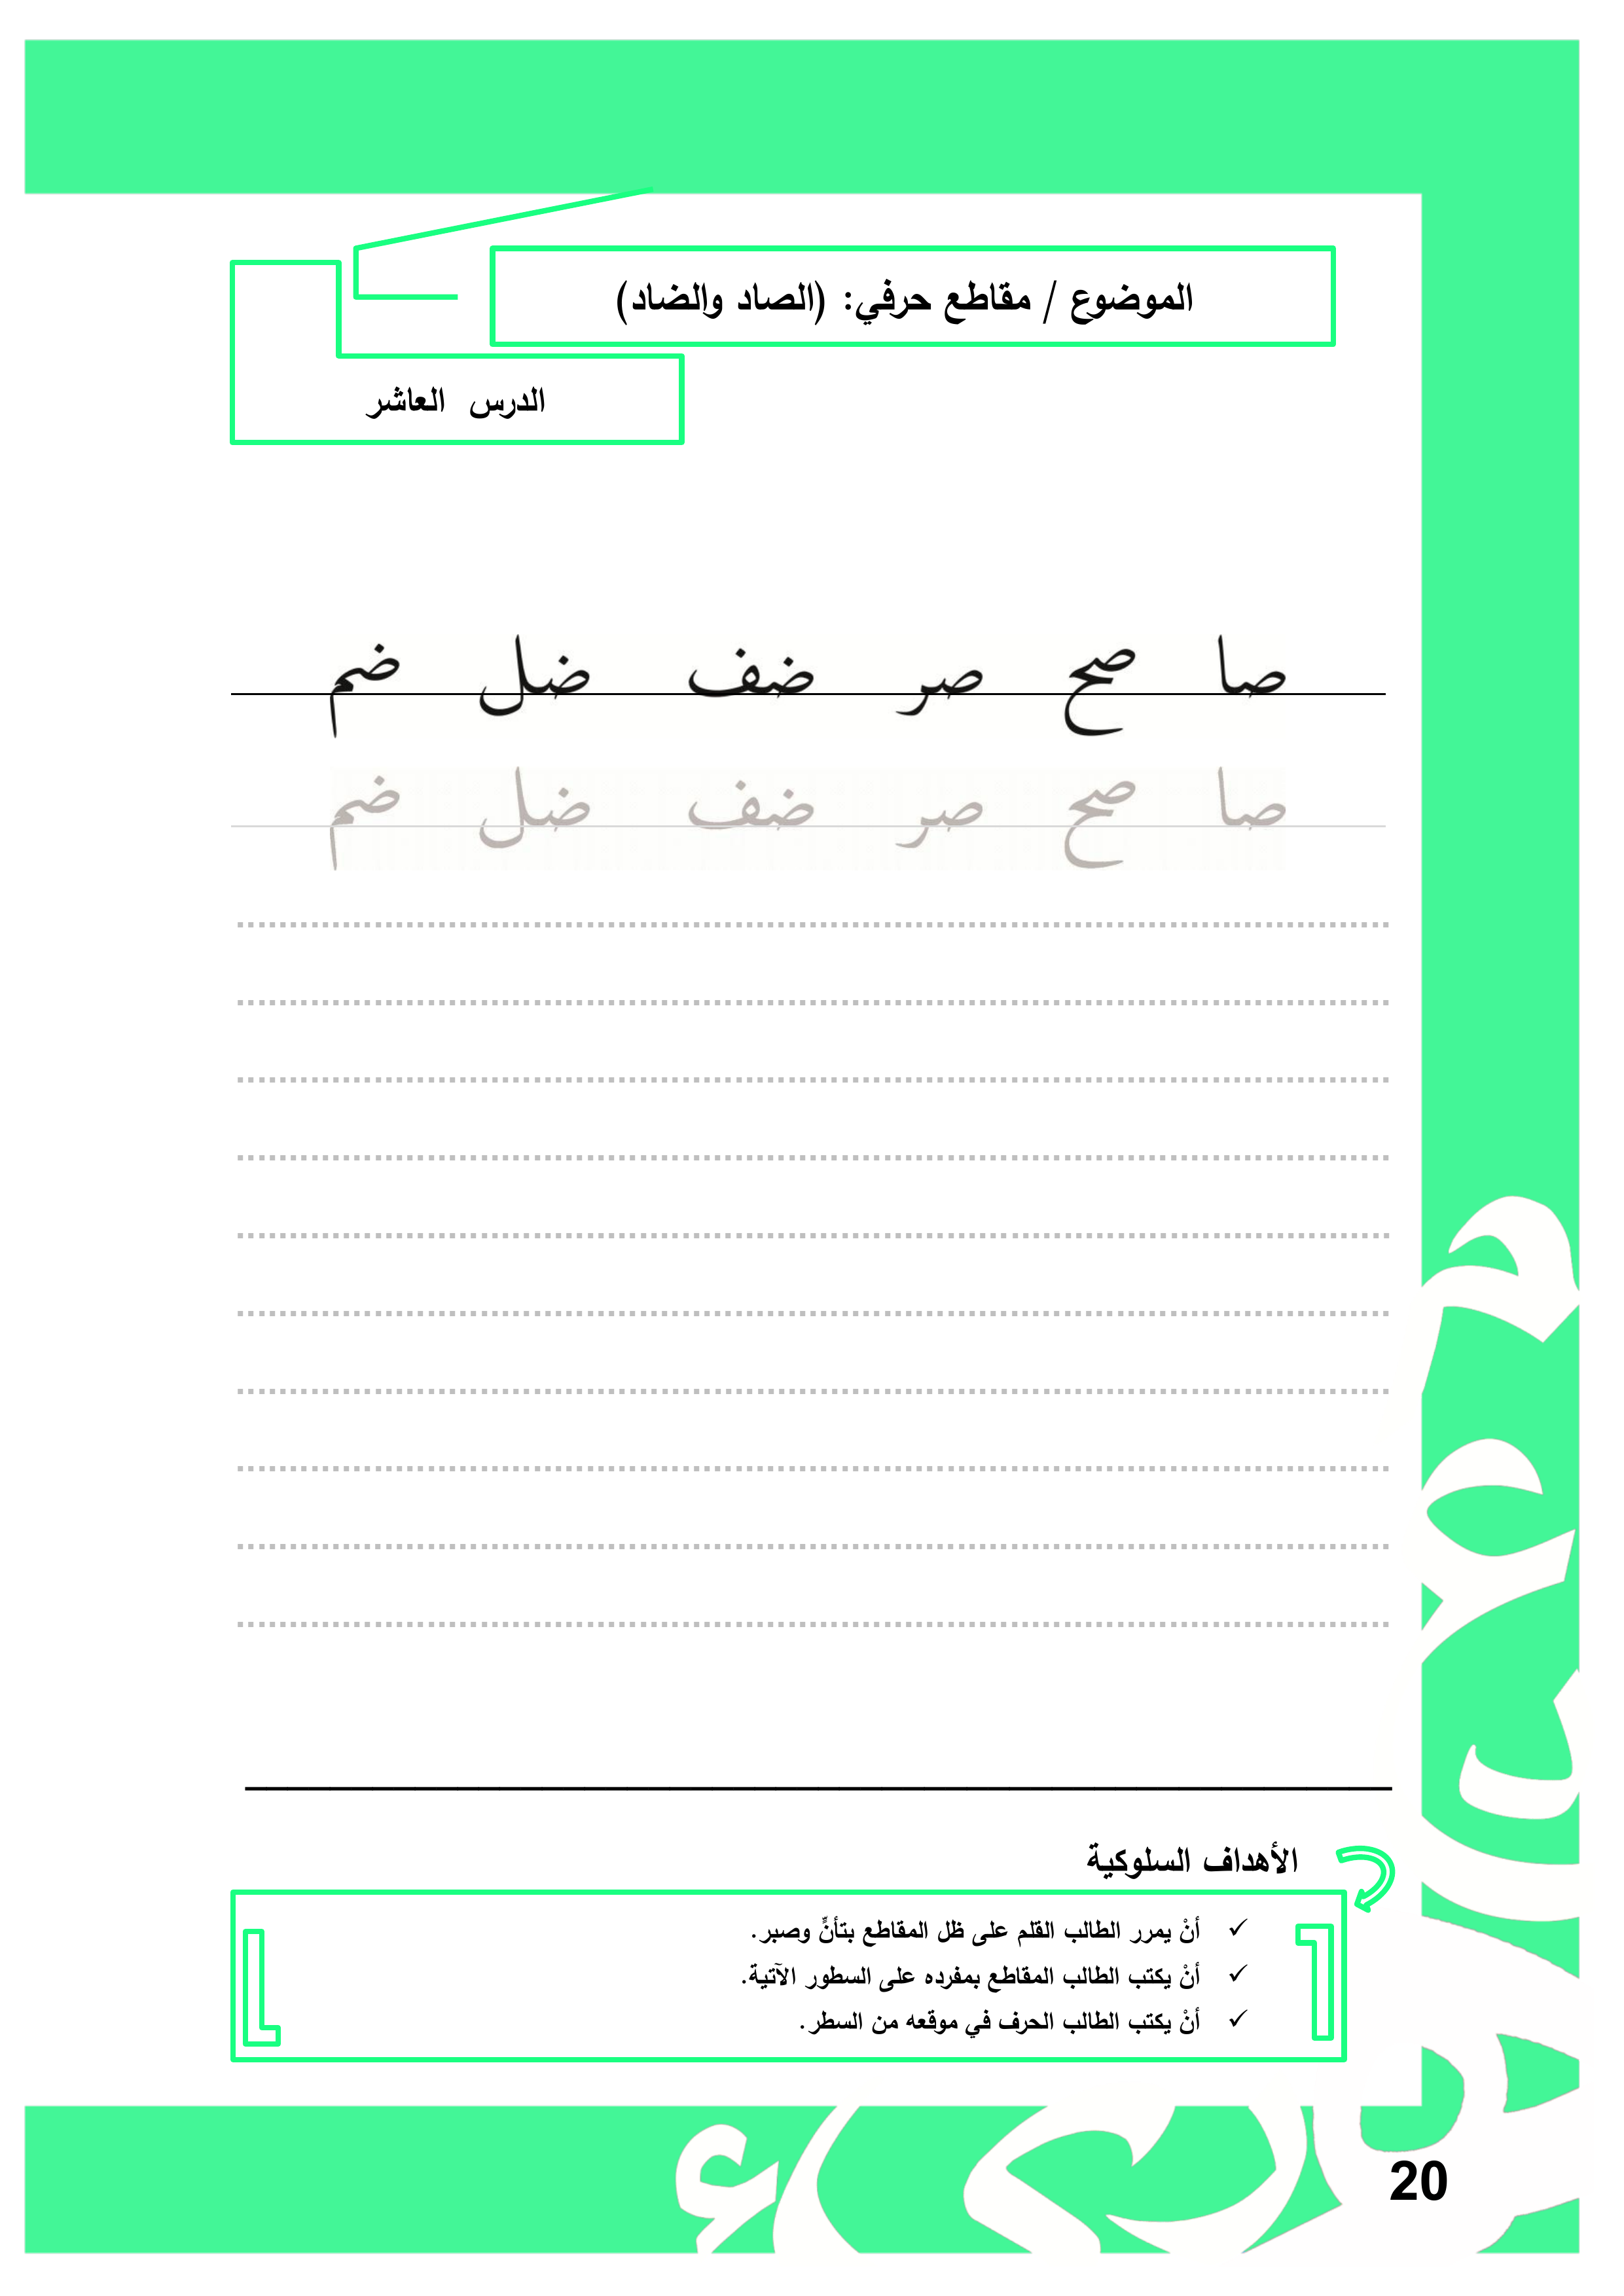 الموضوع / مقاطع حرفي: (الصاد والضاد)
الدرس العاشر
صا صح صر ضف ضل ضم
صا صح صر ضف ضل ضم
الأهداف السلوكية
✓ أنْ يمرر الطالب القلم على ظل المقاطع بتأنٍّ وصبر.
✓ أنْ يكتب الطالب المقاطع بمفرده على السطور الآتية.
✓ أنْ يكتب الطالب الحرف في موقعه من السطر.
20